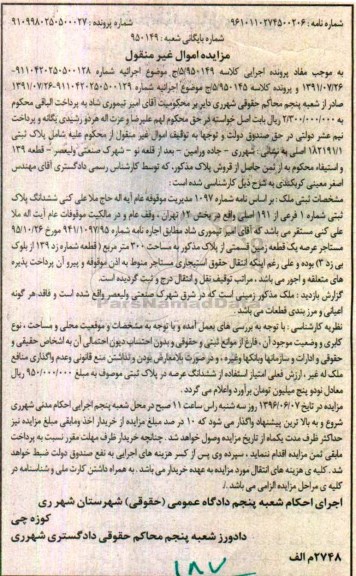 شماره نامه : ۹۶۱۰۱۱۰۲۷۴۵۰۰۲۰۶ شماره پرونده : ۹۱۰۹۹۸۰۲۵۰۵۰۰۰۲۷
شماره بایگانی شعبه : ۹۵۰۱۴۹
مزایده اموال غیر منقول
به موجب مفاد پرونده اجرایی کلاسه ۹۵۰۱۴۹/۵/ج موضوع اجرائیه شماره ۹۱۱۰۴۲۰۲۵۰۵۰۰۱۲۸-
۱۳۹۱/۰۷/۲۶ و پرونده کلاسه ۹۵۰۱۴۵/۵/ج موضوع اجرائیه شماره ۹۱۱۰۴۲۰۲۵۰۵۰۰۱۲۹-۱۳۹۱/۰۷/۲۶
صادر از شعبه پنجم محاکم حقوقی شهرری دایر بر محکومیت آقای امیر تیموری شاد به پرداخت الباقی محکوم
به ۲/۳۰۰/۰۰۰/۰۰۰ ریال بابت اصل خواسته در حق محکوم لهم علیرضا و عزت اله هر دو رشیدی یگانه و پرداخت
نیم عشر دولتی در حق صندوق دولت و توجها به توقیف اموال غیر منقول از محکوم علیه شامل پلاک ثبتی
۱۸۲۱۹۱/۱ اصلی به نشانی : شهرری - جاده ورامین - بعد از قلعه نو - شهرک صنعتی ولیعصر - قطعه ۱۳۹
و استیفاء محکوم به از ثمن حاصل از فروش پلاک مذکور، که توسط کارشناس رسمی دادگستری آقای مهندس
اصغر معینی کربکندی به شرح ذیل کارشناسی شده است :
مشخصات ثبتی ملک : بر اساس نامه شماره ۱۰۹۷ مدیریت موقوفه عام آیه اله حاج ملا علی کنی ششدانگ پلاک
ثبتی شماره ۱ فرعی از ۱۹۱ اصلی واقع در بخش ۱۲ تهران ، وقف عام و در مالکیت موقوفات عام آیت اله ملا
علی کنی مستقر می باشد که آقای امیر تیموری شاد مطابق اجاره نامه شماره ۹۴۱/۱۰۹۷/۹۵ مورخ ۹۵/۱۰/۲۶
مستاجر عرصه یک قطعه زمین قسمتی از پلاک مذکور به مساحت ۳۰۰ متر مربع (قطعه شماره زد ۱۳۹ از بلوک
بی زد ۳) بوده و علی رغم اینکه انتقال حقوق استیجاری مستاجر منوط به اذن موقوفه و پیرو آن پرداخت پذیره
های متعلقه و اجور می باشد ، مراتب توقیف نقل و انتقال درج و ثبت گردیده است.
گزارش بازدید : ملک مذکور زمینی است که در شرق شهرک صنعتی ولیعصر واقع شده است و فاقد هر گونه
اعیانی و مرز بندی قطعات می باشد .
نظریه کارشناسی : با توجه به بررسی های بعمل آمده و با توجه به مشخصات و موقعیت محلی و مساحت ، نوع
کابری و وضعیت موجود آن ، فارغ از موانع ثبتی و حقوقی و بدون احتساب دیون احتمالی آن به اشخاص حقیقی و
حقوقی و ادارات و سازمانها و بانکها و غیره ، و در صورت بلامعارض بودن و نداشتن منع قانونی وعدم واگذاری منافع
ملک له غیر ، ارزش فعلی امتیاز استفاده از ششدانگ عرصه در پلاک ثبتی موصوف به مبلغ ۹۵۰/۰۰۰/۰۰۰ ریال
معادل نود و پنج میلیون تومان برآورد و اعلام می گردد .
مزایده در تاریخ ۱۳۹۶/۰۶/۰۷ روز سه شنبه راس ساعت ۱۱ صبح در محل شعبه پنجم اجرایی احکام مدنی شهرری
شروع و به بالا ترین پیشنهاد واگذار می شود که ۱۰ در صد مبلغ مزایده از خریدار اخذ و مابقی مبلغ مزایده نیز
حداکثر ظرف مدت یکماه از تاریخ مزایده وصول خواهد شد . چنانچه خریدار ظرف مهلت مقرر نسبت به پرداخت
مابقی ثمن مزایده اقدام ننماید ، سپرده وی پس از کسر هزینه های اجرایی به نفع صندوق دولت ضبط خواهد
شد . کلیه ی هزینه های انتقال مورد مزایده به عهده خریدار می باشد . به همراه داشتن کارت ملی و شناسنامه در
کلیه ی مراحل مزایده الزامی می باشد ./
اجرای احکام شعبه پنجم دادگاه عمومی (حقوقی) شهرستان شهر ری
کوزه چی
دادورز شعبه پنجم محاکم حقوقی دادگستری شهرری
۲۷۴۸م الف